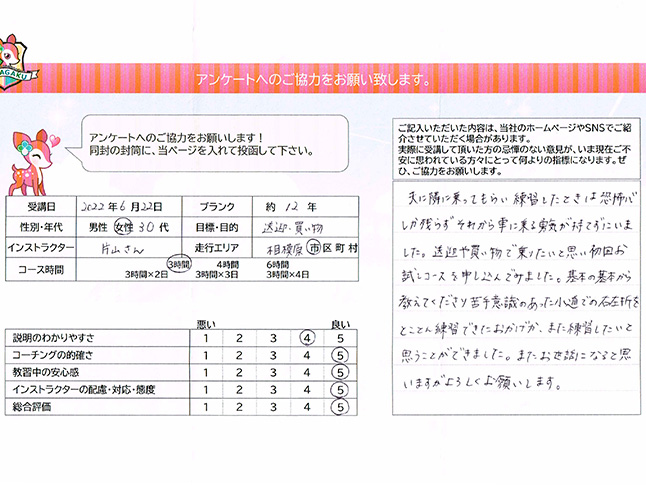 AGAKU
アンケートへのご協力をお願い致します。
アンケートへのご協力をお願いします！
同封の封筒に、当ページを入れて投函して下さい。
受講日 2022年6月22日 ブランク 約 12 年
性別・年代 男性 女性 30代 目標・目的 送迎・買い物
インストラクター 片山さん 走行エリア 相模原 市区町村
コース時間 3時間 4時間 6時間
3時間×2日 3時間×3日 3時間×4日
悪い 良い
説明のわかりやすさ 1 2 3 4 5
コーチングの的確さ 1 2 3 4 5
教習中の安心感 1 2 3 4 5
インストラクターの配慮・対応・態度 1 2 3 4 5
総合評価 1 2 3 4 5
ご記入いただいた内容は、当社のホームページやSNSでご紹
介させていただく場合があります。
実際に受講して頂いた方の忌憚のない意見が、いま現在ご不
安に思われている方々にとって何よりの指標になります。ぜ
ひ、ご協力をお願いします。
夫に隣に乗ってもらい練習したときは恐怖心
しか残らずそれから車に乗る勇気が持てずにいま
した。送迎や買い物で乗りたいと思い初回お
試しコースを申し込んでみました。基本の基本から
教えてくださり苦手意識のあった小道での右左折を
とことん練習できたおかげか、また練習したいと
思うことができました。またお世話になると思
いますがよろしくお願いします。